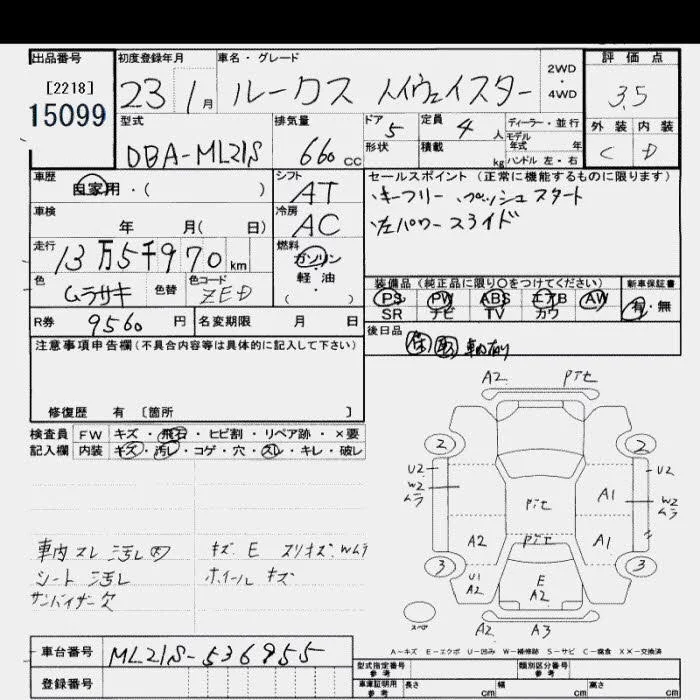 出品番号
[2218]
15099
初度登録年月
23 1月
車名・グレード
ルークス ハイウェイスター
2WD
・
4WD
評価点
3.5
外装 内装
C D
型式
DBA-ML21S
排気量
660 CC
ドア 5
形状
定員 4 人
積載 kg
ディーラー・並行
モデル年式 年
ハンドル 左・右
車歴
自家用・( )
車検
年 月( 日)
走行
13万5千970 km
色
ムラサキ
色替
色コード
ZED
シフト
AT
冷房
AC
燃料
ガソリン
軽・油
( )
セールスポイント (正常に機能するものに限ります)
・キーフリー ・プッシュスタート
・左パワースライド
装備品(純正品に限り○をつけてください)
PS PW ABS エアB AW
SR ナビ TV カワ
新車保証書
有・無
後日品
保 取 車内有り
R券 9560 円
名変期限 月 日
注意事項申告欄(不具合内容等は具体的に記入して下さい)
修復歴 有 [箇所 ]
検査員 FW キズ・飛石・ヒビ割・リペア跡・×要
記入欄 内装 キズ・汚レ・コゲ・穴・スレ・キレ・破レ
車内スレ汚レ
シート汚レ
サンバイザー欠
キズ E スリキズ、Wムラ
ホイールキズ
A2 Pit
2 2
U2 U2
W2 ムラ W2 ムラ
A1
Pit
A2 Pit A1
3 3
U1
A2
E
A2
スペア
A2 A3
A-キズ E-エクボ U-凹み W-補修跡 S-サビ C-腐食 ××-交換済
車台番号 ML21S-536955
登録番号
型式指定番号 参考
類別区分番号 参考
車庫証明用 参考 長さ cm 幅 cm 高さ cm